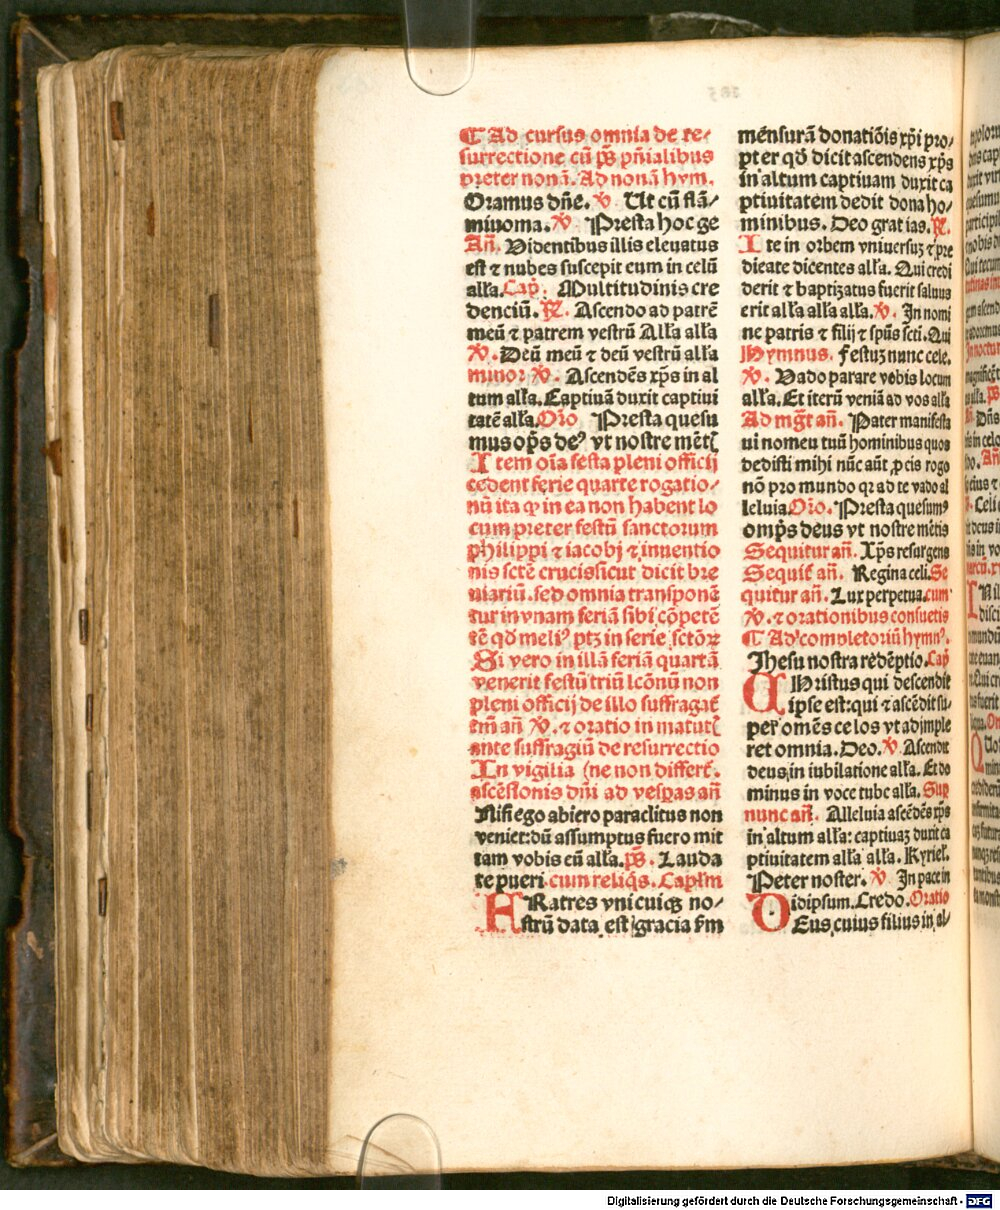 ¶ Ad cursus omnia de re⸗
surrectione cū p̄s pn̄ialibus
preter nonā. Ad nonā hym.
Oramus dn̄e. ℣ Ut cū flā⸗
miuoma. ℣ Presta hoc ge
An̄. Videntibus illis eleuatus
est ⁊ nubes suscepit eum in celū
all'a. Cap̄. Multitudinis cre
denciū. ℟. Ascendo ad patrē
meū ⁊ patrem vestrū All'a all'a
℣. Deū meū ⁊ deū vestrū all'a
minor ℣. Ascendēs xp̄s in al
tum all'a. Captiuā duxit captiui
tatē all'a. Oro Presta quesu
mus op̄s deꝰ vt nostre mēt
Item oīa festa pleni officij
cedent ferie quarte rogatio⸗
nū ita ꝙ in ea non habent lo
cum preter festū sanctorum
philippi ⁊ iacobi ⁊ inuentio
nis sctē crucis sicut dicit bre
uiariū. sed omnia transponē
tur in vnam feriā sibi cōpetē
tē qd̄ meliꝰ ptꝫ in serie sctōꝝ
Si vero in illā feriā quartā
venerit festū triū lcōnū non
pleni officij de illo suffragat̄
em̄ an̄ ℣. ⁊ oratio in matut
ante suffragiū de resurrectio
In vigilia (ne non differt̄.
ascēsionis dn̄i ad vesp̄as an̄
Nisi ego abiero paraclitus non
veniet: dū assumptus fuero mit
tam vobis eū all'a. p̄s. Lauda
te pueri cum reliq̄s. Caplm
FRatres vnicuiqꝫ no⸗
strū data est gracia sm̄
mēnsurā donatiōis xp̄i pro⸗
pter qd̄ dicit ascendens xp̄s
in altum captiuam duxit ca
ptiuitatem dedit dona ho⸗
minibus. Deo gratias. ℟.
Ite in orbem vniuersuꝫ ⁊ pre
dicate dicentes all'a. Qui credi
derit ⁊ baptizatus fuerit saluus
erit all'a all'a all'a. ℣. In nomi
ne patris ⁊ filij ⁊ spūs scti. Qui
Hymnus. Festuꝫ nunc cele.
℣. Vado parare vobis locum
all'a. Et iterū veniā ad vos all'a
Ad mḡt an̄. Pater manifesta
ui nomeu tuū hominibus quos
dedisti mihi nūc aūt ꝓ eis rogo
nō pro mundo qr ad te vado al
leluia Oro. Presta quesumꝰ
omp̄s deus vt nostre mētis
Sequitur an̄. Xp̄s resurgens
Sequit̄ an̄. Regina celi. Se
quitur an̄. Lux perpetua. cum
℣. ⁊ orationibus consuetis
¶ Ad completoriū hymnꝰ.
Jhesu nostra rēdēptio. Cap̄
CHristus qui descendit
ipse est: qui ⁊ ascēdit su⸗
per omēs celos vt adimple
ret omnia. Deo. ℣. Ascendit
deus in iubilatione all'a. Et do
minus in voce tube all'a. Sup
nunc an̄. Alleluia ascēdēs xp̄s
in altum all'a: captiuaꝫ duxit ca
ptiuitatem all'a all'a. Kyriel'.
Peter noster. ℣ In pace in
idipsum. Credo. Oratio
DEus cuius filius in al⸗
Digitalisierung gefördert durch die Deutsche Forschungsgemeinschaft - DFG